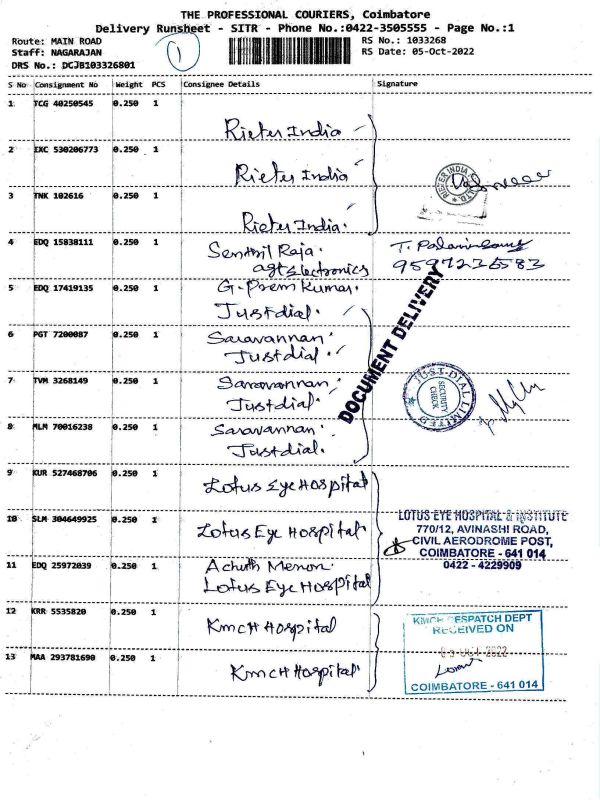 THE PROFESSIONAL COURIERS, Coimbatore
Delivery Runsheet - SITR - Phone No.:0422-3505555 - Page No.:1
Route: MAIN ROAD
Staff: NAGARAJAN
DRS No.: DCJB103326801
1
RS No.: 1033268
RS Date: 05-Oct-2022
S No Consignment No Weight PCS Consignee Details Signature
1 TCG 40250545 0.250 1
Rieter India
2 EKC 530206773 0.250 1
Rieter India
3 TNK 102616 0.250 1
Rieter India.
RIETER INDIA
4 EDQ 15838111 0.250 1 Senthil Raja.
agt Electronics
9597235583
5 EDQ 17419135 0.250 1 G. Prem Kumar.
Justdial.
DOCUMENT DELIVERY
6 PGT 7200087 0.250 1 Saravannan
Justdial.
7 TVM 3268149 0.250 1 Saravannan
Justdial.
JUST-DIAL LIMITED
SECURITY
CHECK
8 MLM 70016238 0.250 1 Saravannan
Justdial.
9 KUR 527468706 0.250 1
Lotus Eye Hospital
10 SLM 304649925 0.250 1
Lotus Eye Hospital
LOTUS EYE HOSPITAL & INSTITUTE
770/12, AVINASHI ROAD,
CIVIL AERODROME POST,
COIMBATORE - 641 014
0422 - 4229909
11 EDQ 25972039 0.250 1 Achuth Menon.
Lotus Eye Hospital
12 KRR 5535820 0.250 1
KmCH Hospital
KMCH DESPATCH DEPT
RECEIVED ON
13 MAA 293781690 0.250 1
KmCH Hospital
COIMBATORE - 641 014